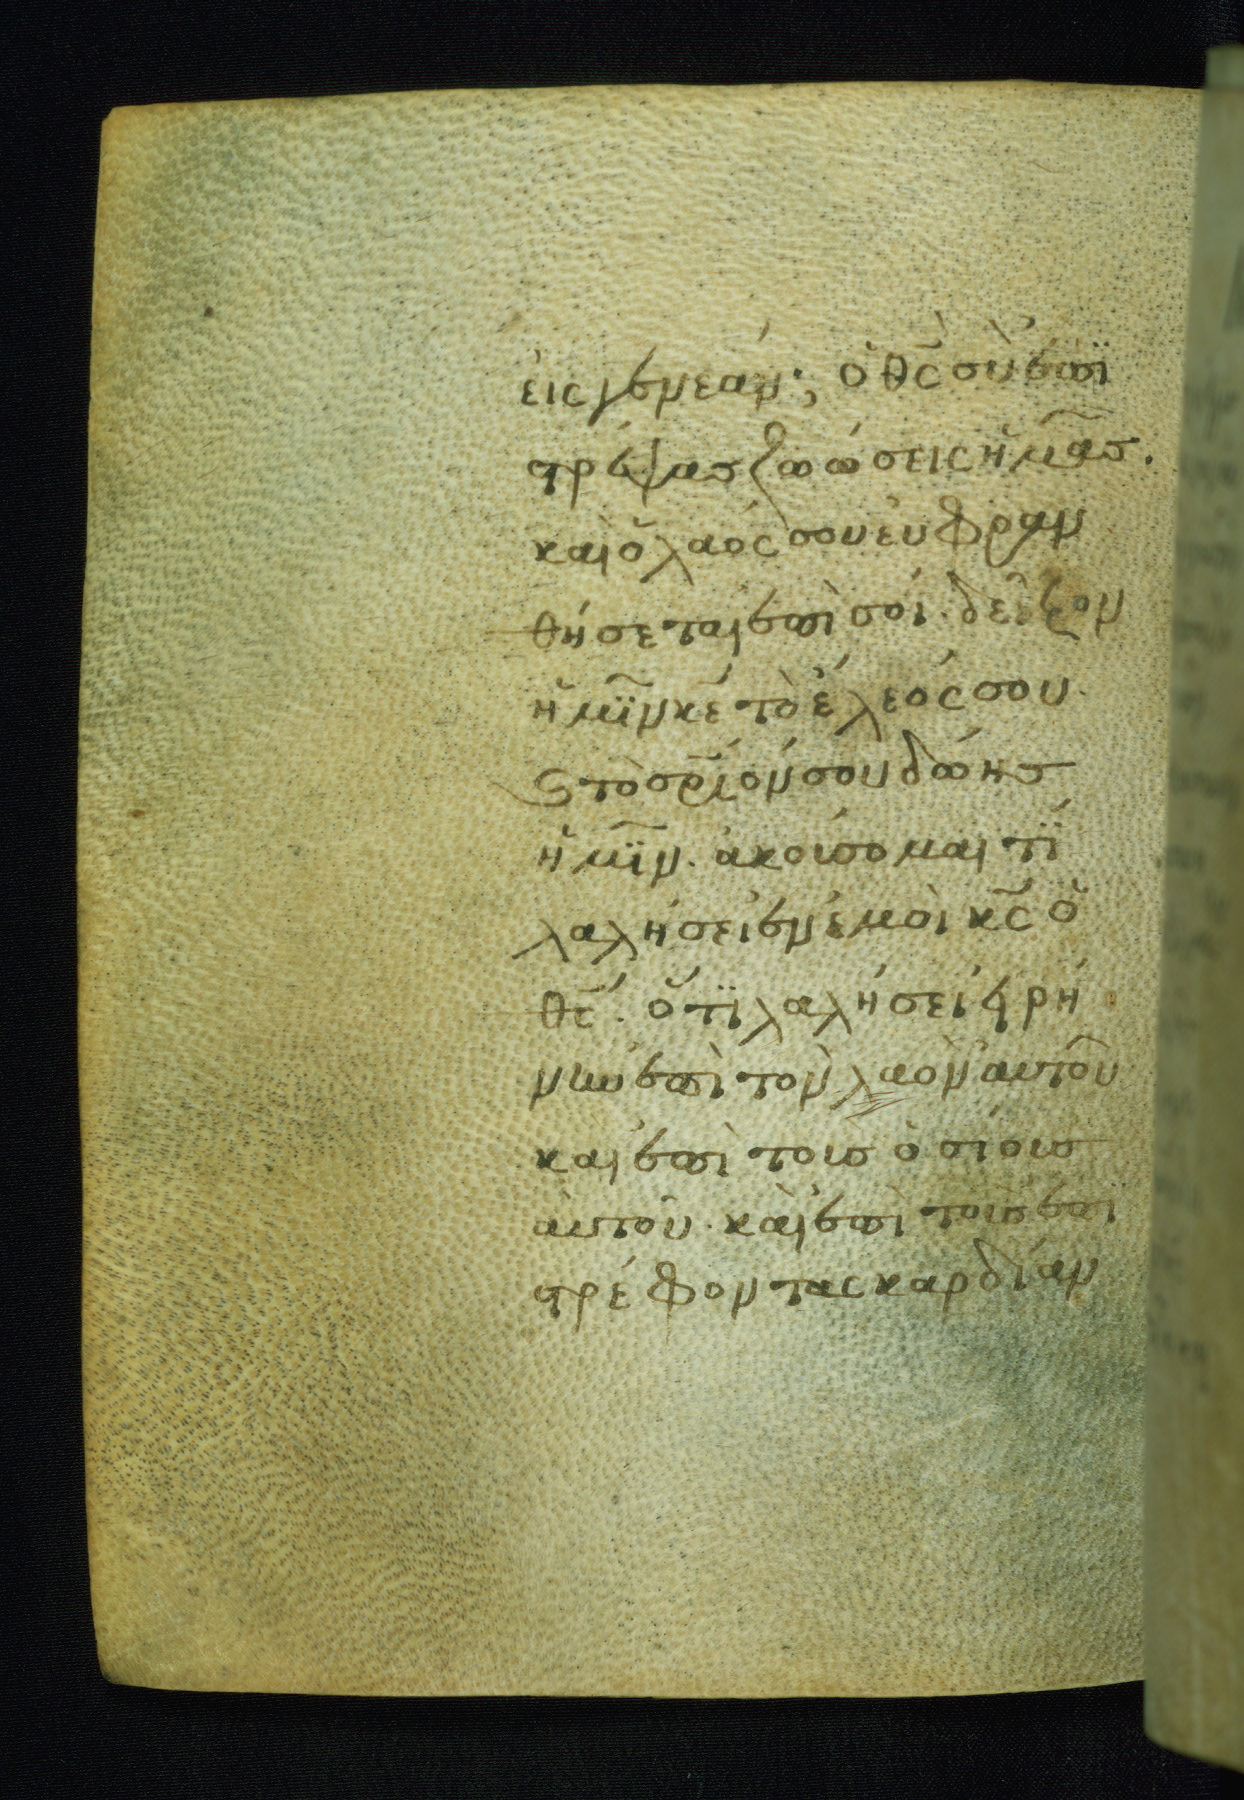 εἰς γενεάν; ὁ θς̄ σὺ ἐπϊ
στρέψας ζωώσεις ἡμᾶς.
καὶ ὁ λαός σου εὐφραν
θήσεται ἐπὶ σοί. δεῖξον
ἡμῖν κε̄ τὸ ἔλεός σου.
ϛ τὸ σρ̄ιόν σου δώης
ἡμῖν. ἀκούσομαι τί
λαλήσει ἐν ἐμοὶ κς̄ ὁ
θς̄. ὅτϊ λαλήσει εἰρή
νην ἐπὶ τὸν λαὸν αὐτοῦ
καὶ ἐπὶ τοις ὁσίοις
αὐτοῦ. καὶ ἐπὶ τοὺς ἐπϊ
στρέφοντας καρδίαν